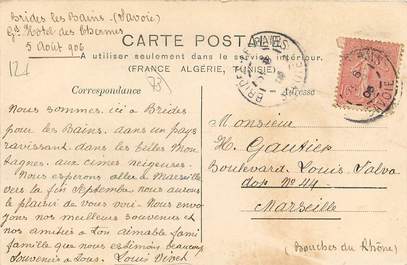 Brides les Bains - (Savoie)
Gd Hotel des Thermes
5 Août 906
CARTE POSTALE
A utiliser seulement dans le service intérieur.
(FRANCE, ALGÉRIE, TUNISIE)
Correspondance
Adresse
Nous sommes ici à Brides
pour les Bains, dans un pays
ravissant dans les belles Mon
tagnes aux cimes neigeuses.
Nous esperons aller à Marseille
vers la fin Septembre nous aurons
le plaisir de vous voir. Nous envo
yons nos meilleurs souvenirs et
nos amitiés à ton aimable fami
famille que nous estimons beaucoup
Souvenirs à tous. Louis Divet
Monsieur
H. Gautier
Boulevard Louis Salva
dor Nº 44
Marseille
(Bouches du Rhône)